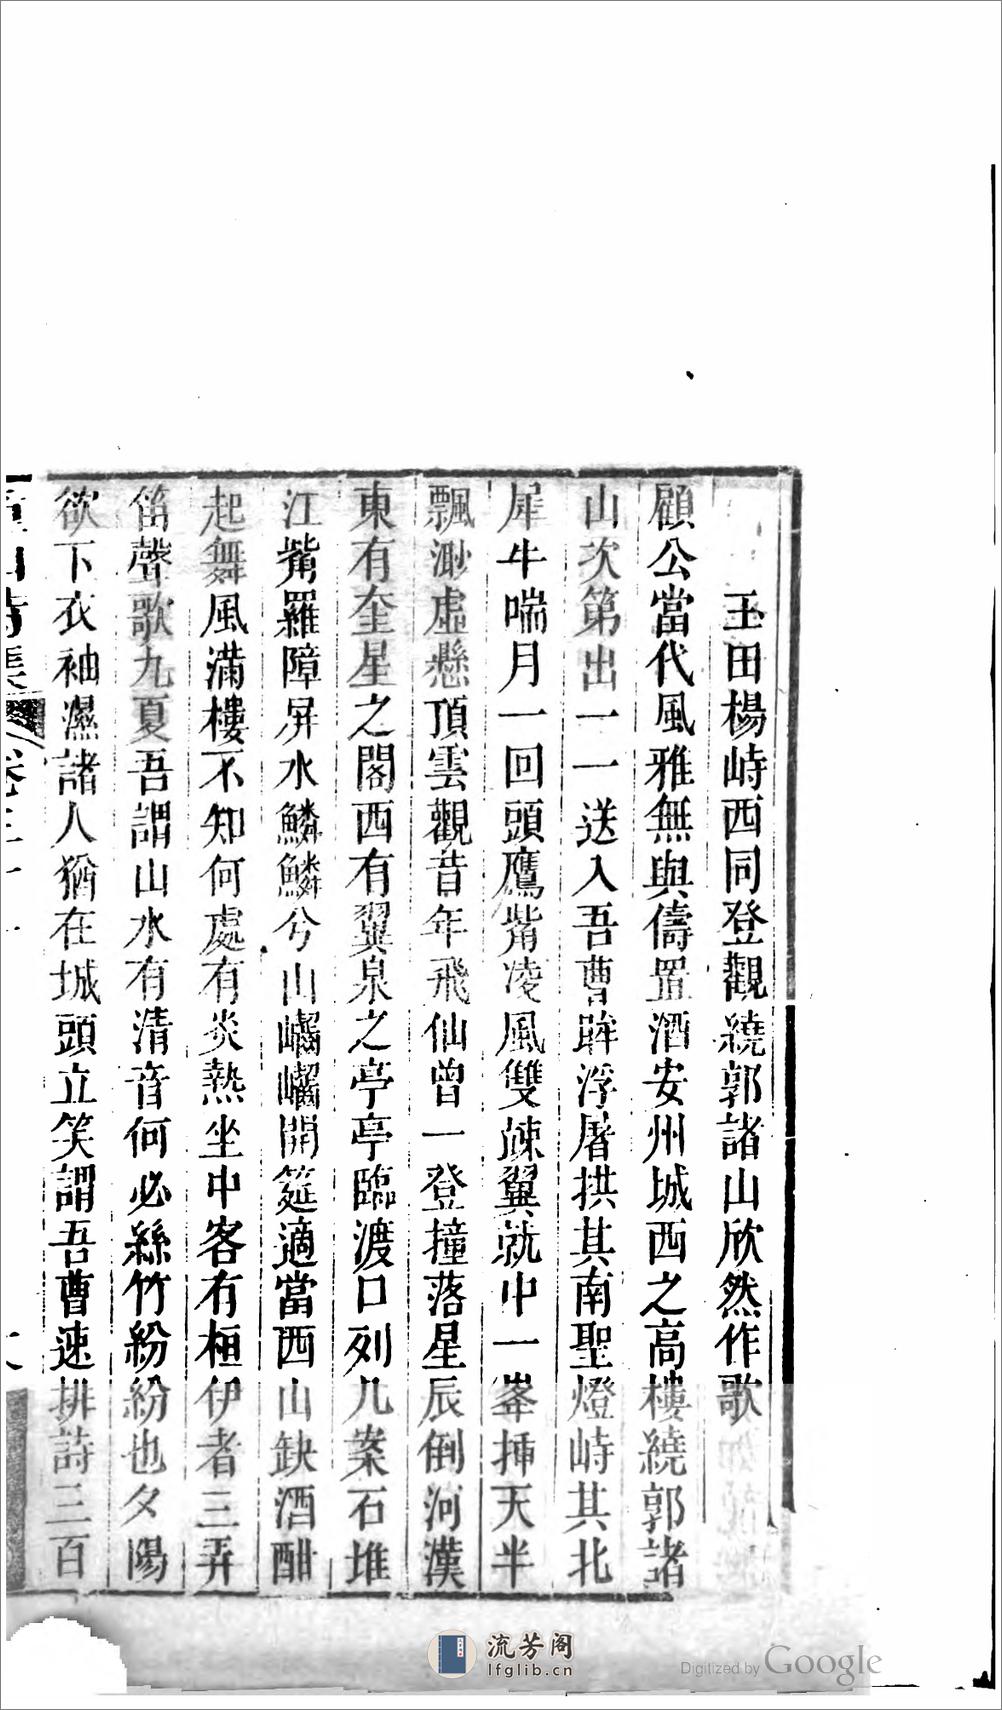 玉田楊峙西同登觀繞郭諸山欣然作歌
顧公當代風雅無與儔置酒安州城西之高樓繞郭諸
山次第出一一送入吾曹眸浮屠拱其南聖燈峙其北
犀牛喘月一回頭鷹觜凌風雙疎翼就中一峯揷天半
飄渺虛懸頂雲觀昔年飛仙曾一登撞落星辰倒河漢
東有奎星之閣西有翼泉之亭亭臨渡口列几案石堆
江觜羅障屏水鱗鱗兮山巑巑開筵適當西山缺酒酣
起舞風滿樓不知何處有炎熱坐中客有桓伊者三弄
笛聲歌九夏吾謂山水有清音何必絲竹紛紛也夕陽
欲下衣袖濕諸人猶在城頭立笑謂吾曹速排詩三百
童山詩集 卷三十一
流芳阁
lfglib.cn
Digitized by Google